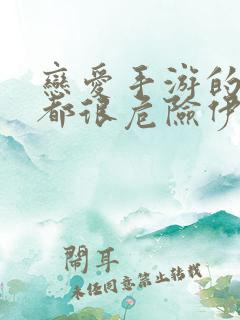 戀愛手游的
都很危險伊
鬧耳
未经同意禁止转载